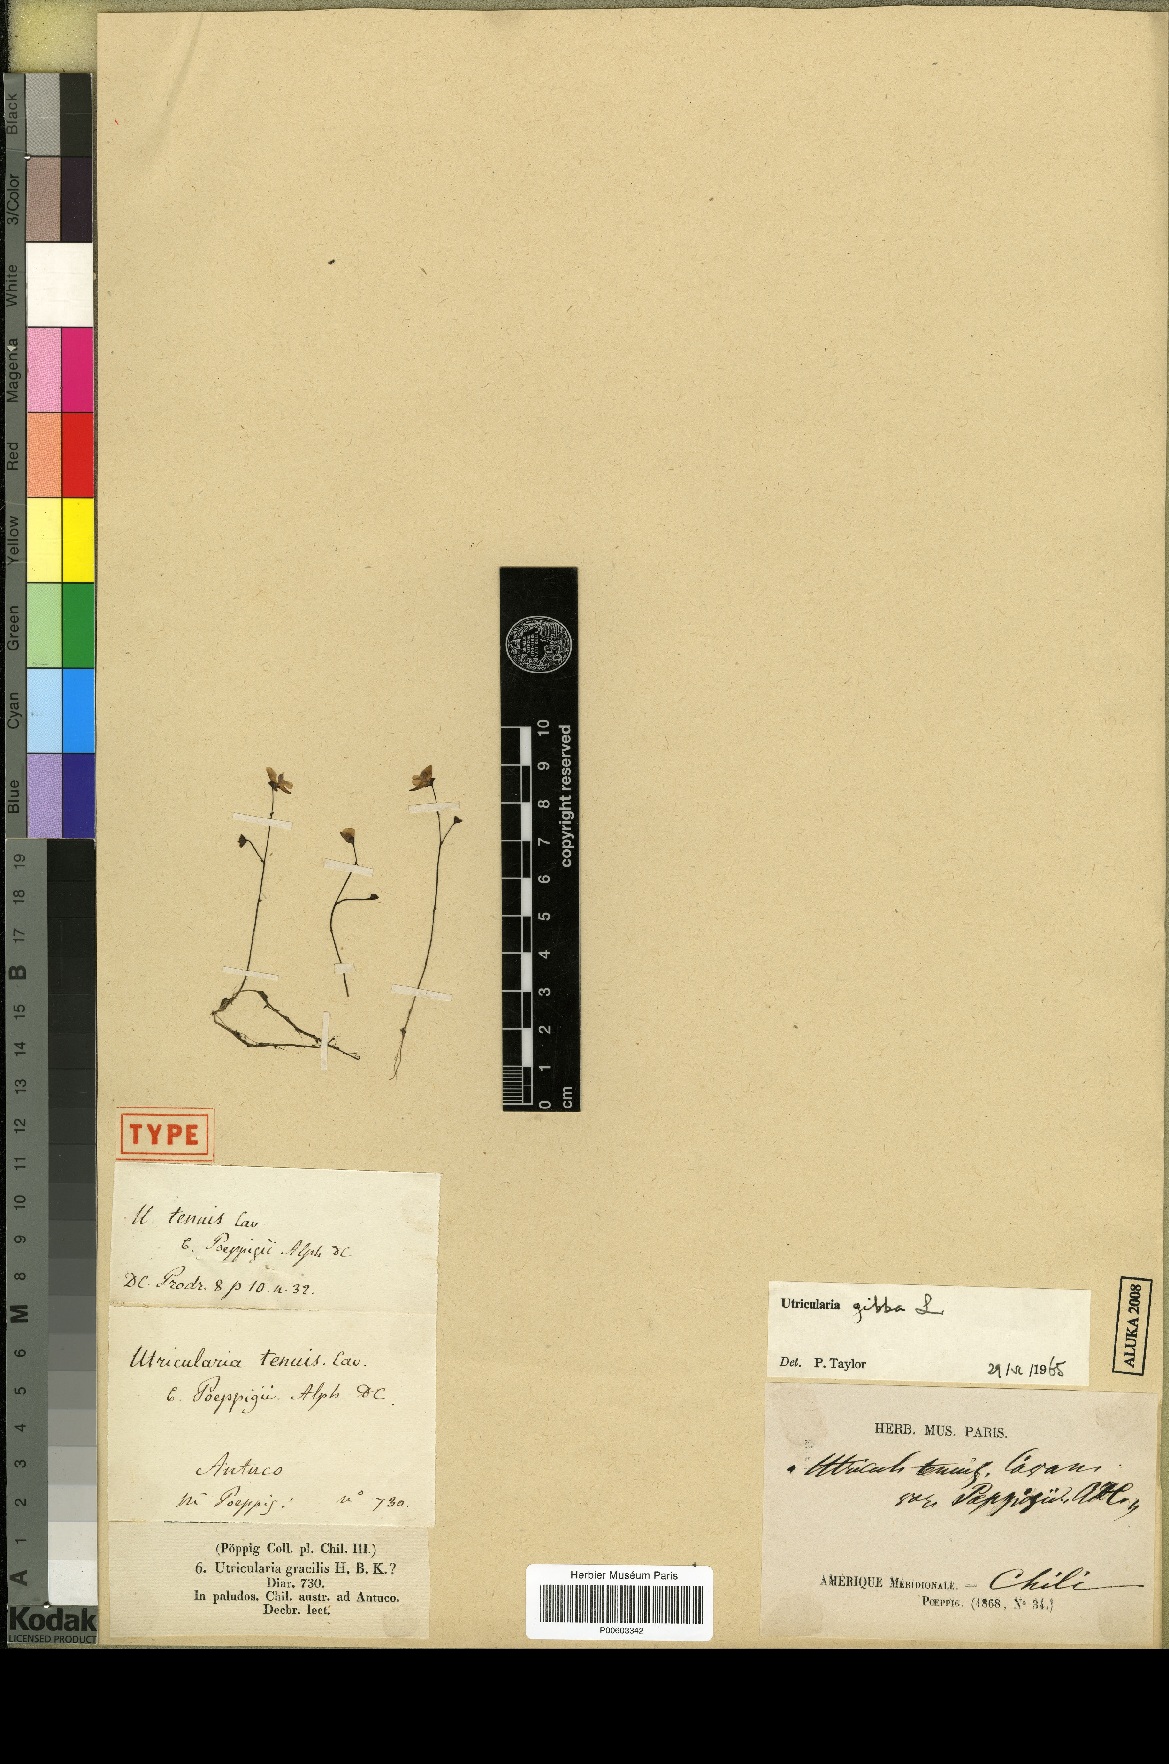 Black
3/Color
White
Magenta
Red
Yellow
Green
Cyan
Blue
19
18
17
B
15
14
13
12
11
10
9
8
M
6
5
4
3
2
1
A
Kodak
LICENSED PRODUCT
10
9
8
7
6
5
4
3
2
1
0
cm
copyright reserved
TYPE
U. tenuis Cav
β. Poeppigii Alph DC.
DC. Prodr. 8 p 10. n. 32.
Utricularia tenuis. Cav.
β. Poeppigii. Alph DC.
Antuco
Poeppig! n° 730.
(Pöppig Coll. pl. Chil. III.)
6. Utricularia gracilis H. B. K.?
Diar. 730.
In paludos. Chil. austr. ad Antuco.
Decbr. lect.
Herbier Muséum Paris
P00603342
Utricularia gibba L
Det. P. Taylor 29/VI/1965
ALUKA 2008
HERB. MUS. PARIS.
tenuis.
var. Poeppigii. ADC.
AMÉRIQUE MÉRIDIONALE. — Chili
POEPPIG. (1868, N° 34.)